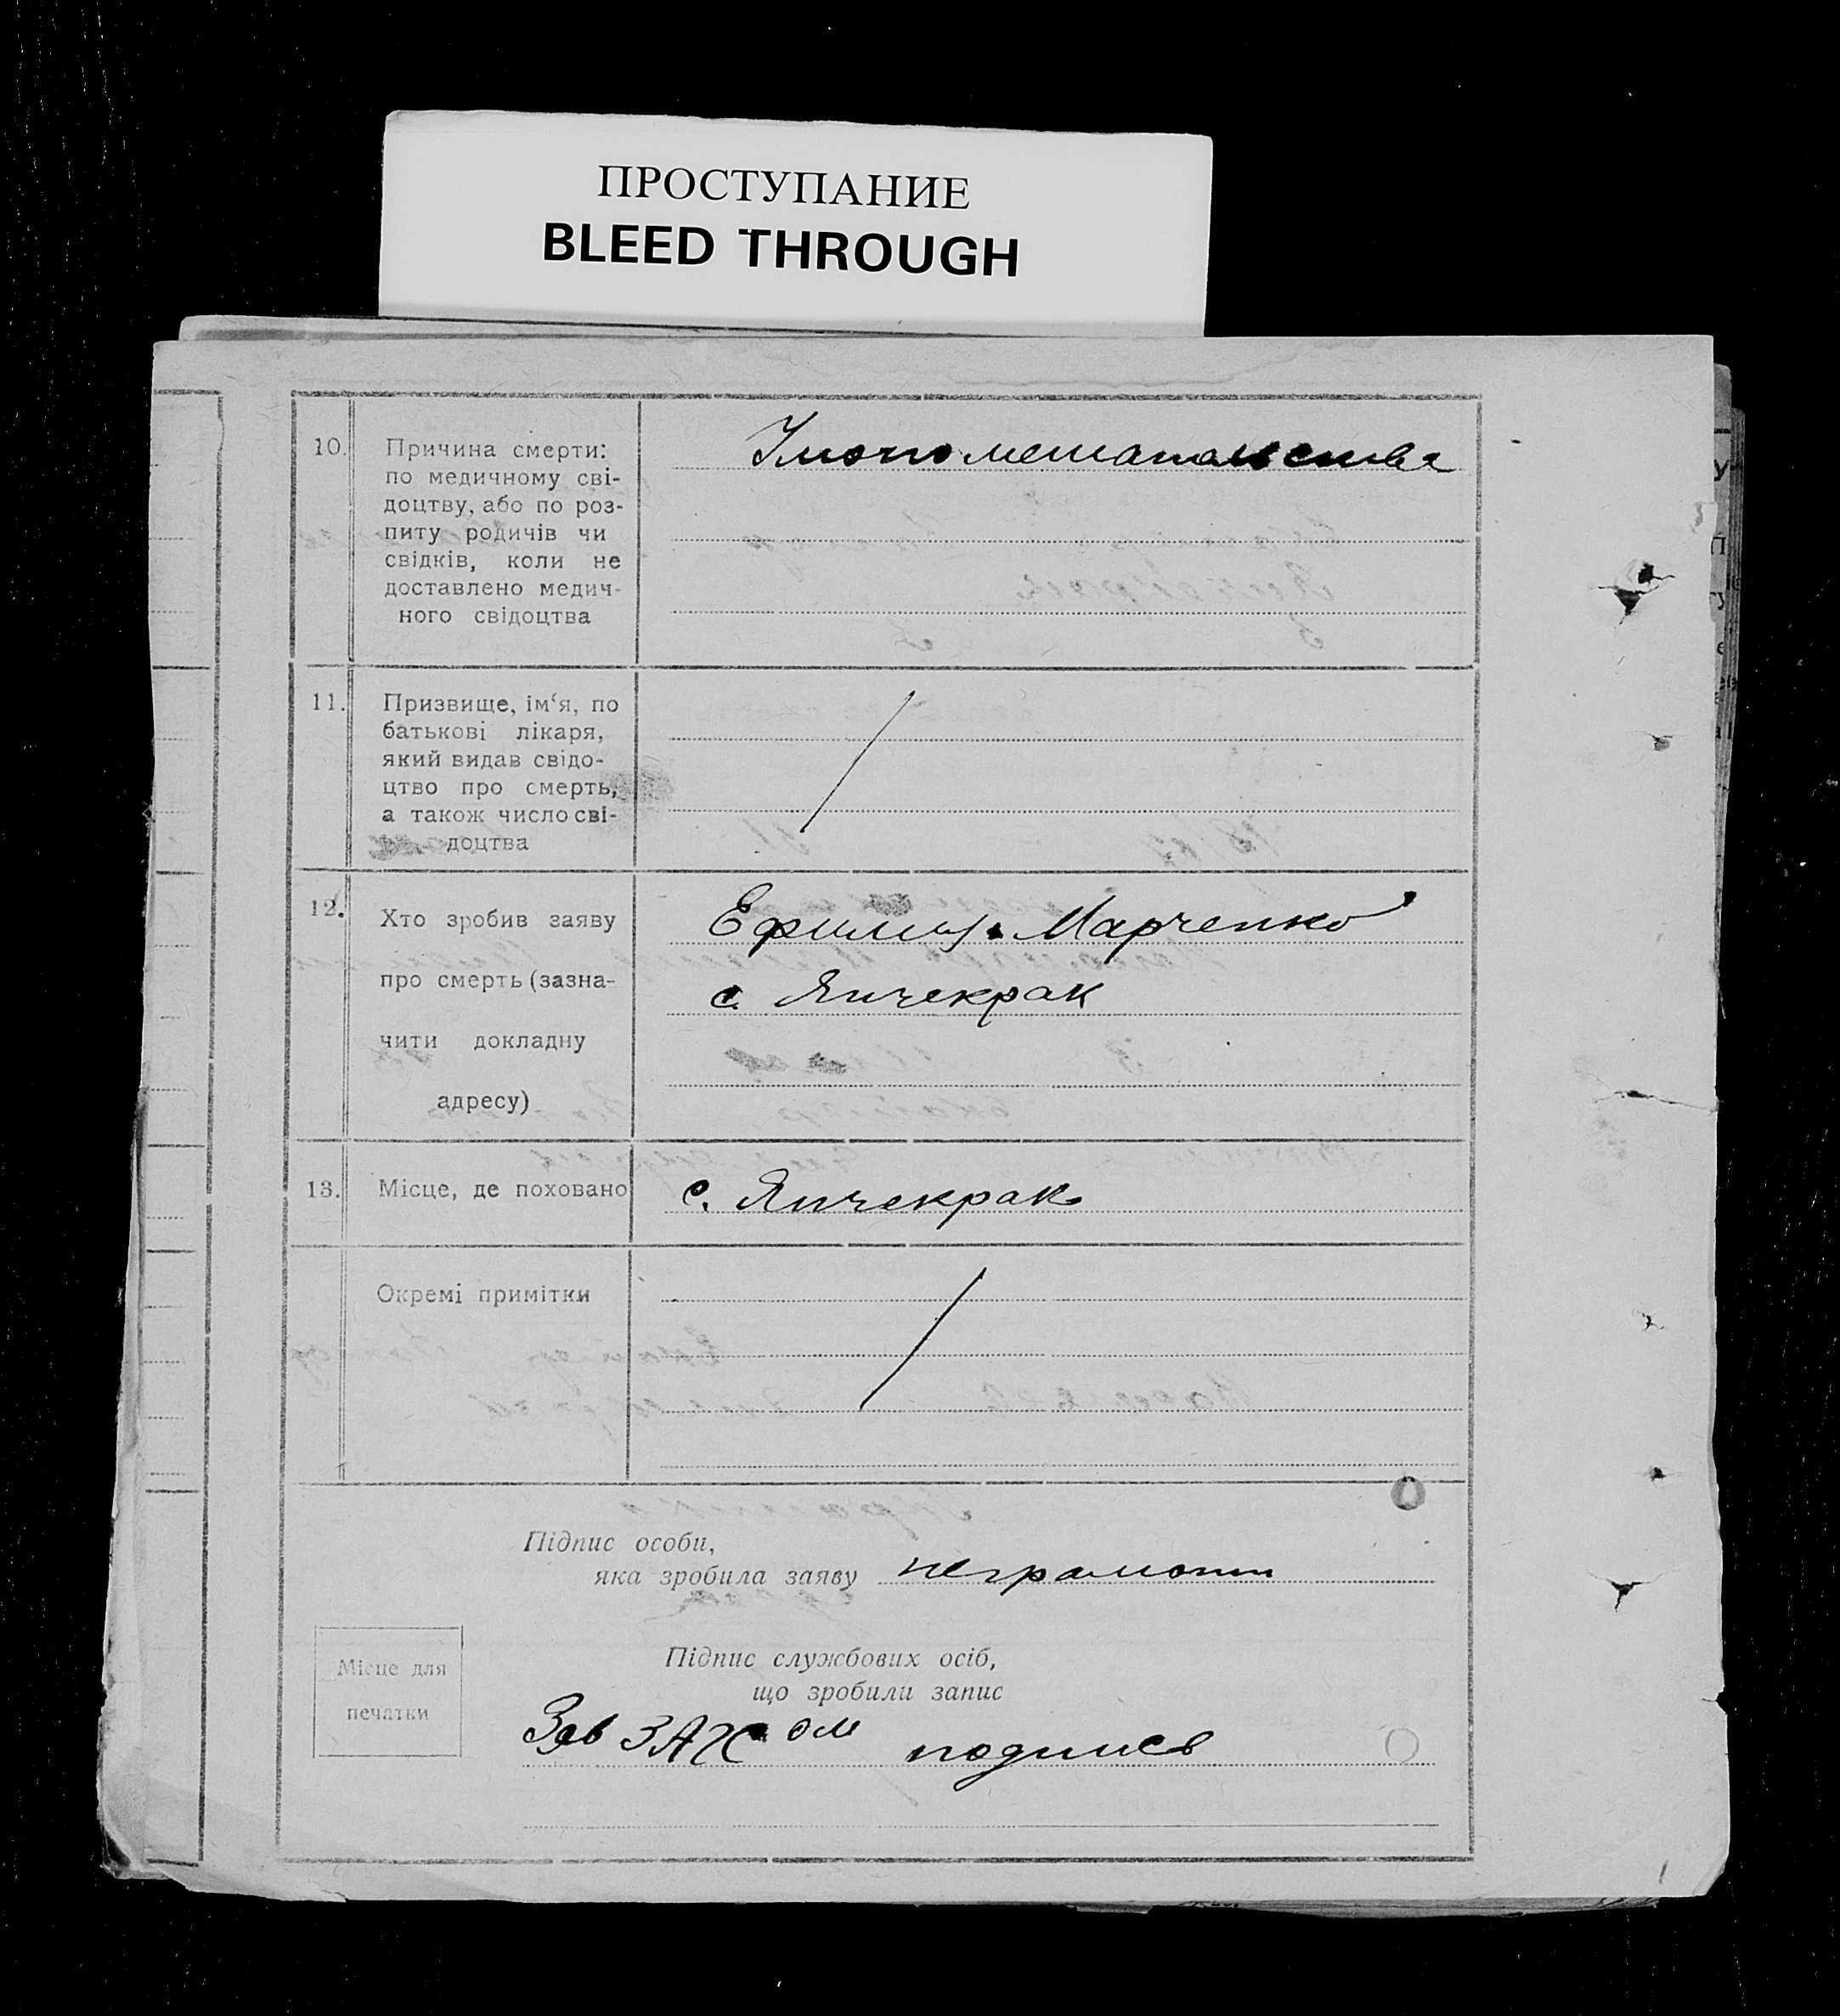 ПРОСТУПАНИЕ
BLEED THROUGH
10.
Причина смерти:
по медичному сві-
доцтву, або по роз-
питу родичів чи
свідків, коли не
доставлено медич-
ного свідоцтва
11.
Призвище, ім‘я, по
батькові лікаря,
який видав свідо-
цтво про смерть,
а також число сві-
доцтва
12.
Хто зробив заяву
про смерть (зазна-
чити докладну
адресу)
Марченко
с. Янчекрак
13.
Місце, де поховано
с. Янчекрак
Окремі примітки
Підпис особи,
яка зробила заяву
неграмотн
Місце для
печатки
Підпис службових осіб,
що зробили запис
Зав ЗАГС ом подпись